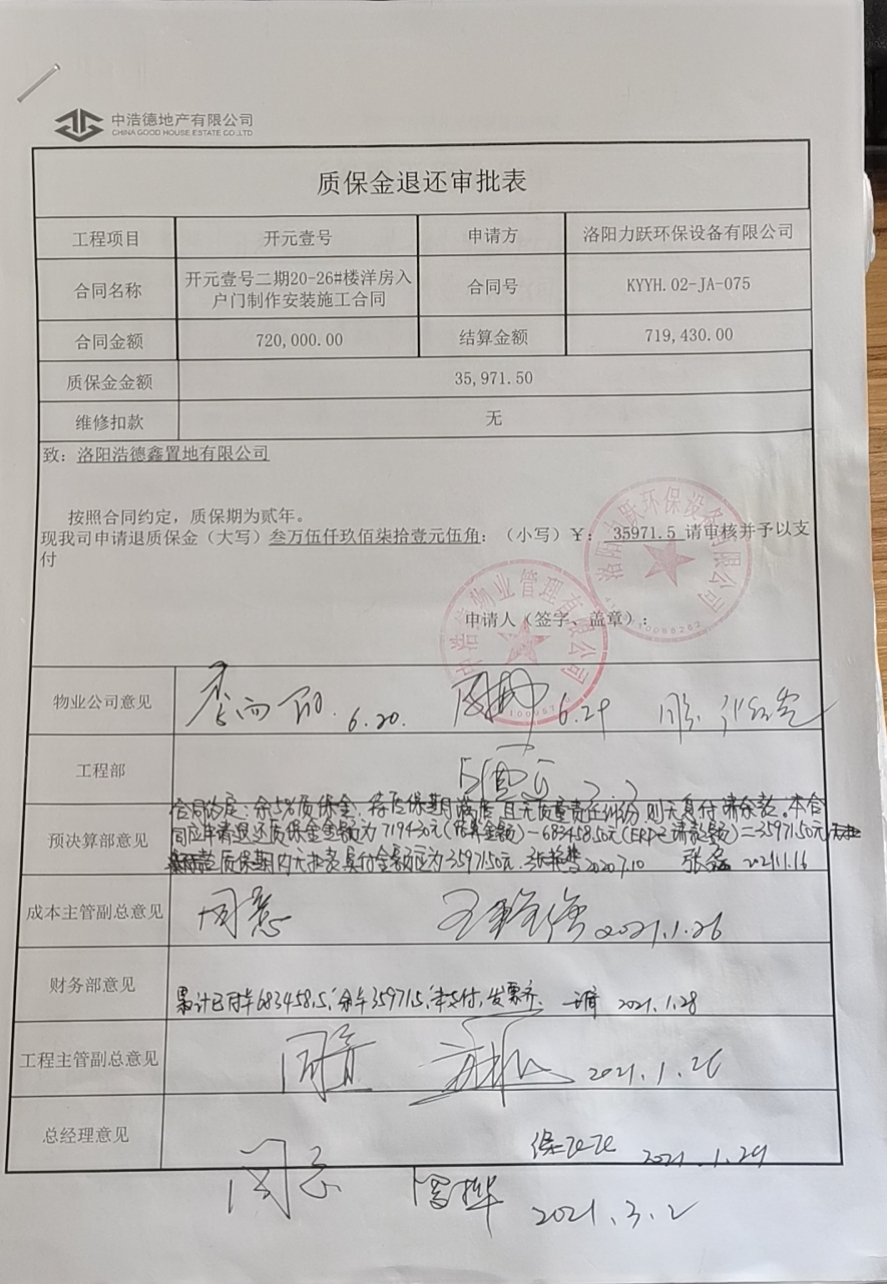 中浩德地产有限公司
CHINA GOOD HOUSE ESTATE CO.,LTD
质保金退还审批表
工程项目 开元壹号 申请方 洛阳力跃环保设备有限公司
合同名称 开元壹号二期20-26#楼洋房入
户门制作安装施工合同 合同号 KYYH.02-JA-075
合同金额 720,000.00 结算金额 719,430.00
质保金金额 35,971.50
维修扣款 无
致：洛阳浩德鑫置地有限公司
按照合同约定，质保期为贰年。
现我司申请退质保金（大写）叁万伍仟玖佰柒拾壹元伍角：（小写）￥：35971.5 请审核并予以支
付
洛阳力跃环保设备有限公司
物业管理有限公司
申请人（签字、盖章）：
物业公司意见 6.20. 6.29
工程部
合同约定：余5%质保金，待质保期满后且无质量责任纠纷则无息付清余款。本合
同应申请退还质保金金额为719430元（结算金额）-683458.50元（ERP已请款总额）=35971.50元
预决算部意见
质保期内无扣款，实付金额应为35971.50元. 2020.7.10 2021.1.16
成本主管副总意见 同意 2021.1.26
财务部意见 累计已付￥683458.5，余￥35971.5，本次付，发票齐. 2021.1.28
工程主管副总意见 同意 2021.1.26
总经理意见 2021.1.29
同意 2021.3.2